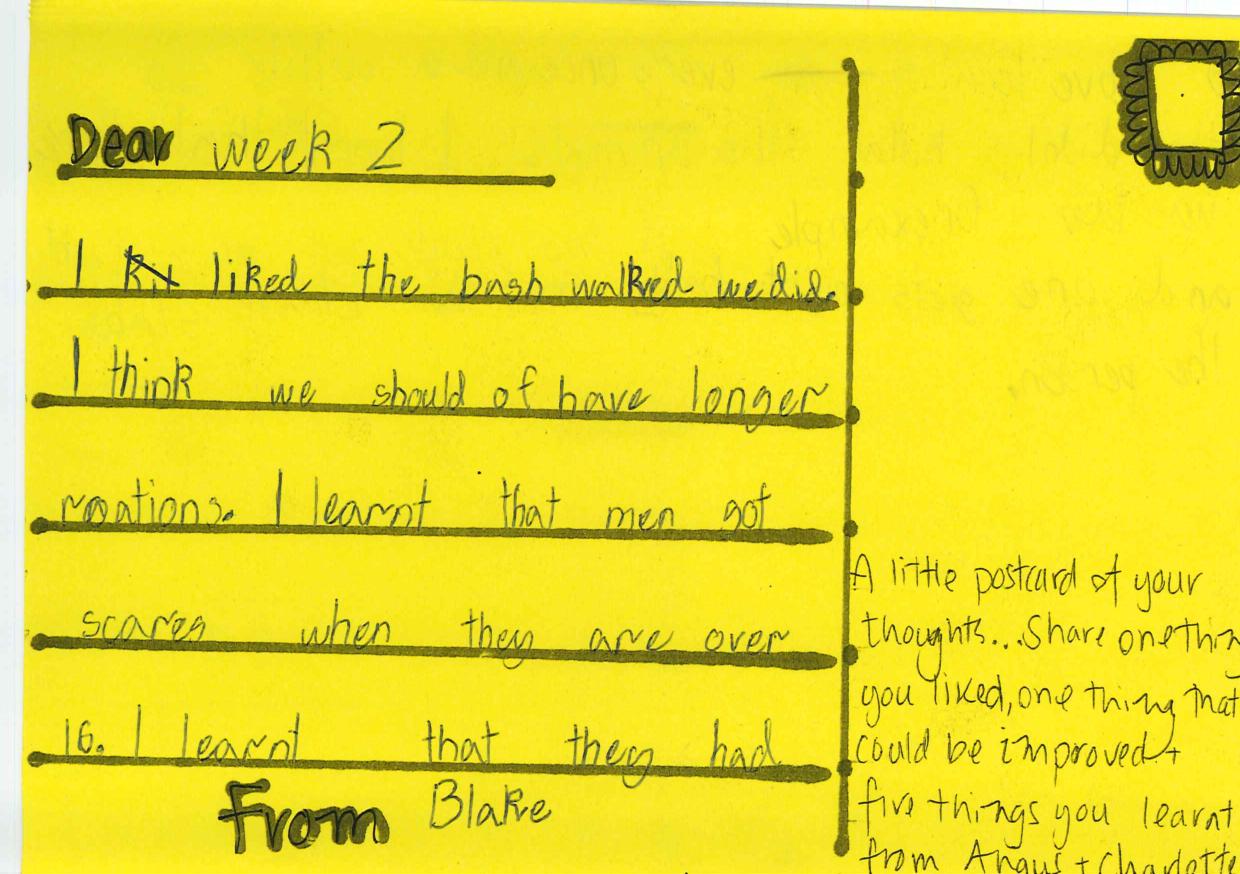 Dear week 2
I liked the bush walked we did.
I think we should of have longer
roations. I learnt that men got
scares when they are over
16. I learnt that they had
From Blake
A little postcard of your
thoughts... Share one thing
you liked, one thing that
could be improved +
five things you learnt
from Angus + Charlotte